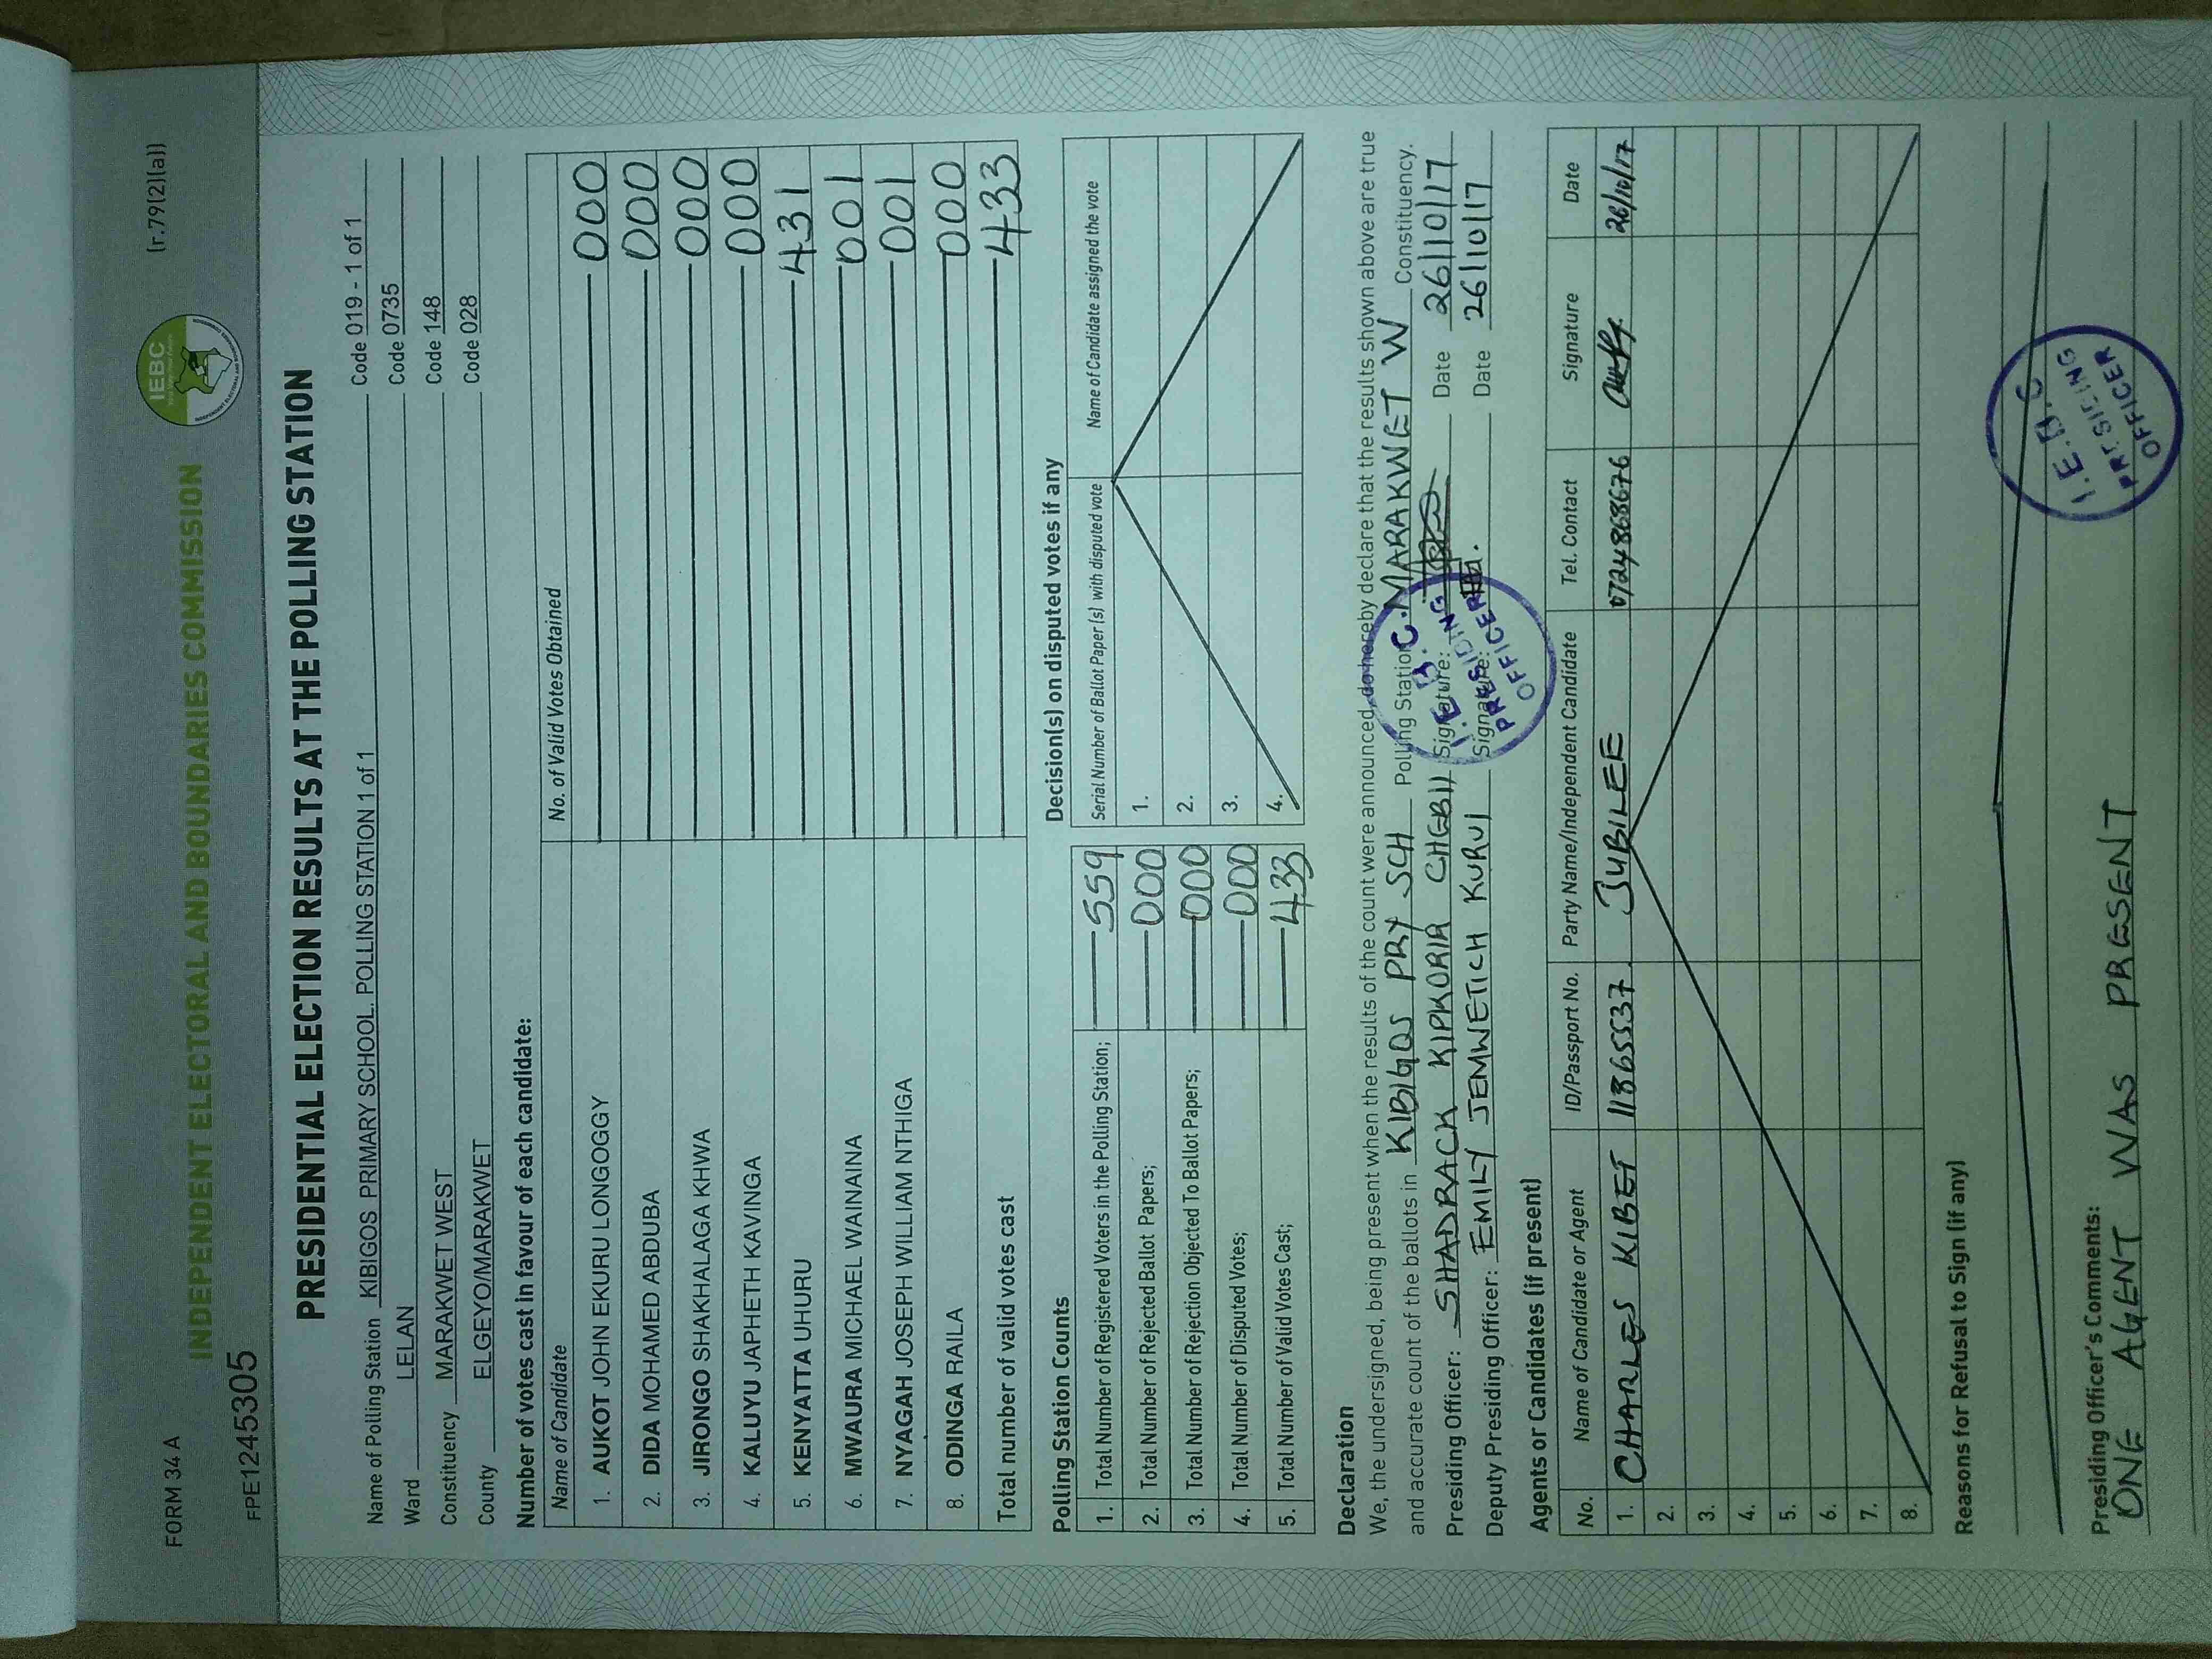 FORM 34 A
(r.79(2)(a))
IEBC
INDEPENDENT ELECTORAL AND BOUNDARIES COMMISSION
FPE1245305
PRESIDENTIAL ELECTION RESULTS AT THE POLLING STATION
Name of Polling Station KIBIGOS PRIMARY SCHOOL. POLLING STATION 1 of 1 Code 019 - 1 of 1
Ward LELAN Code 0735
Constituency MARAKWET WEST Code 148
County ELGEYO/MARAKWET Code 028
Number of votes cast in favour of each candidate:
Name of Candidate No. of Valid Votes Obtained
1. AUKOT JOHN EKURU LONGOGGY 000
2. DIDA MOHAMED ABDUBA 000
3. JIRONGO SHAKHALAGA KHWA 000
4. KALUYU JAPHETH KAVINGA 000
5. KENYATTA UHURU 431
6. MWAURA MICHAEL WAINAINA 001
7. NYAGAH JOSEPH WILLIAM NTHIGA 001
8. ODINGA RAILA 000
Total number of valid votes cast 433
Polling Station Counts
1. Total Number of Registered Voters in the Polling Station; 559
2. Total Number of Rejected Ballot Papers; 000
3. Total Number of Rejection Objected To Ballot Papers; 000
4. Total Number of Disputed Votes; 000
5. Total Number of Valid Votes Cast; 433
Decision(s) on disputed votes if any
Serial Number of Ballot Paper(s) with disputed vote Name of Candidate assigned the vote
1.
2.
3.
4.
Declaration
We, the undersigned, being present when the results of the count were announced, do hereby declare that the results shown above are true
and accurate count of the ballots in KIBIGOS PRY SCH Polling Station, MARAKWET W Constituency.
Presiding Officer: SHADRACK KIPKORIR CHEBII Signature: Date 26/10/17
Deputy Presiding Officer: EMILY JEMWETICH KURUI Signature: Date 26/10/17
I.E.B.C.
PRESIDING
OFFICER
Agents or Candidates (if present)
No. Name of Candidate or Agent ID/Passport No. Party Name/Independent Candidate Tel. Contact Signature Date
1. CHARLES KIBET 11865537 JUBILEE 0724868676 26/10/17
2.
3.
4.
5.
6.
7.
8.
Reasons for Refusal to Sign (if any)
Presiding Officer's Comments:
ONE AGENT WAS PRESENT
I.E.B.C
PRESIDING
OFFICER